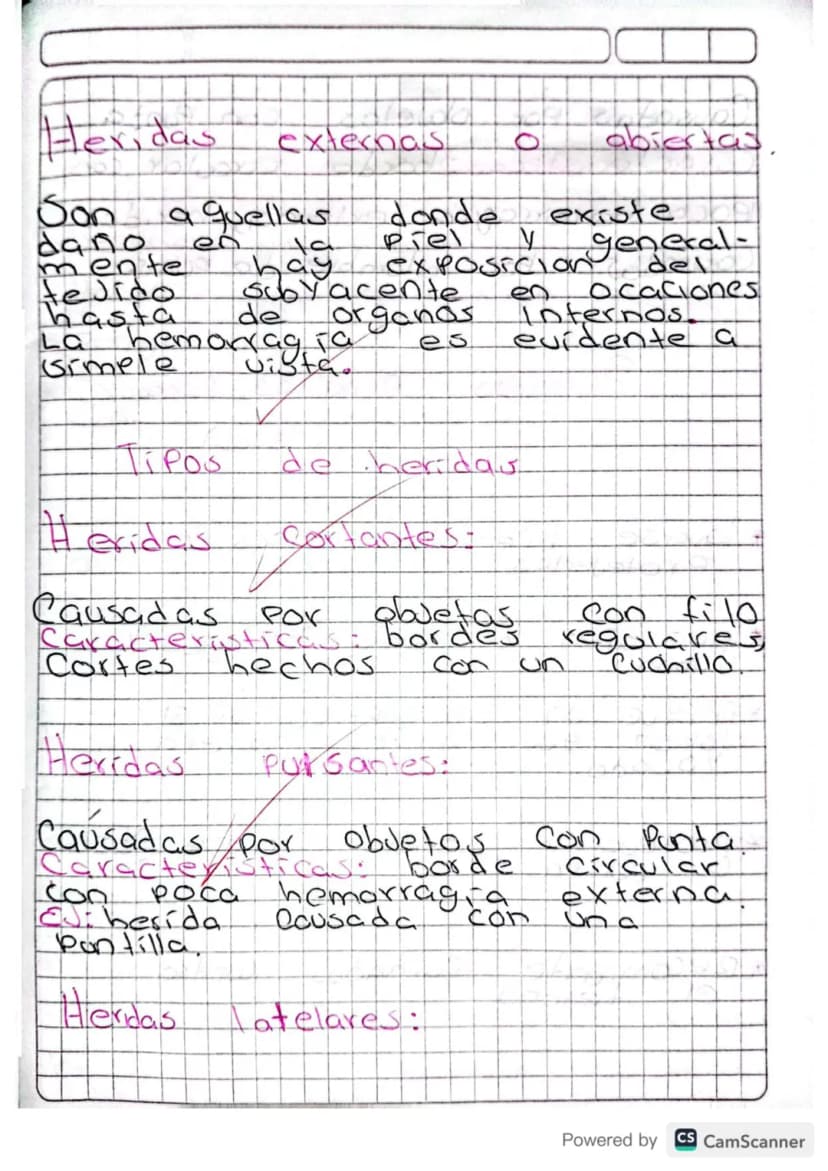 Heridas externas o abiertas.
Son aquellas donde existe
daño en la piel y general-
mente hay exposicion del
tejido subyacente en ocaciones
hasta de organos internos.
La hemorragia es evidente a
simple vista.
Tipos de heridas
Heridas cortantes:
Causadas por objetos con filo
Caracteristicas: bordes regulares,
Cortes hechos con un cuchillo.
Heridas punsantes:
Causadas por objetos con punta.
Caracteristicas: borde circular
con poca hemorragia externa.
EJ: herida causada con una
puntilla.
Herdas latelares:
Powered by CS CamScanner